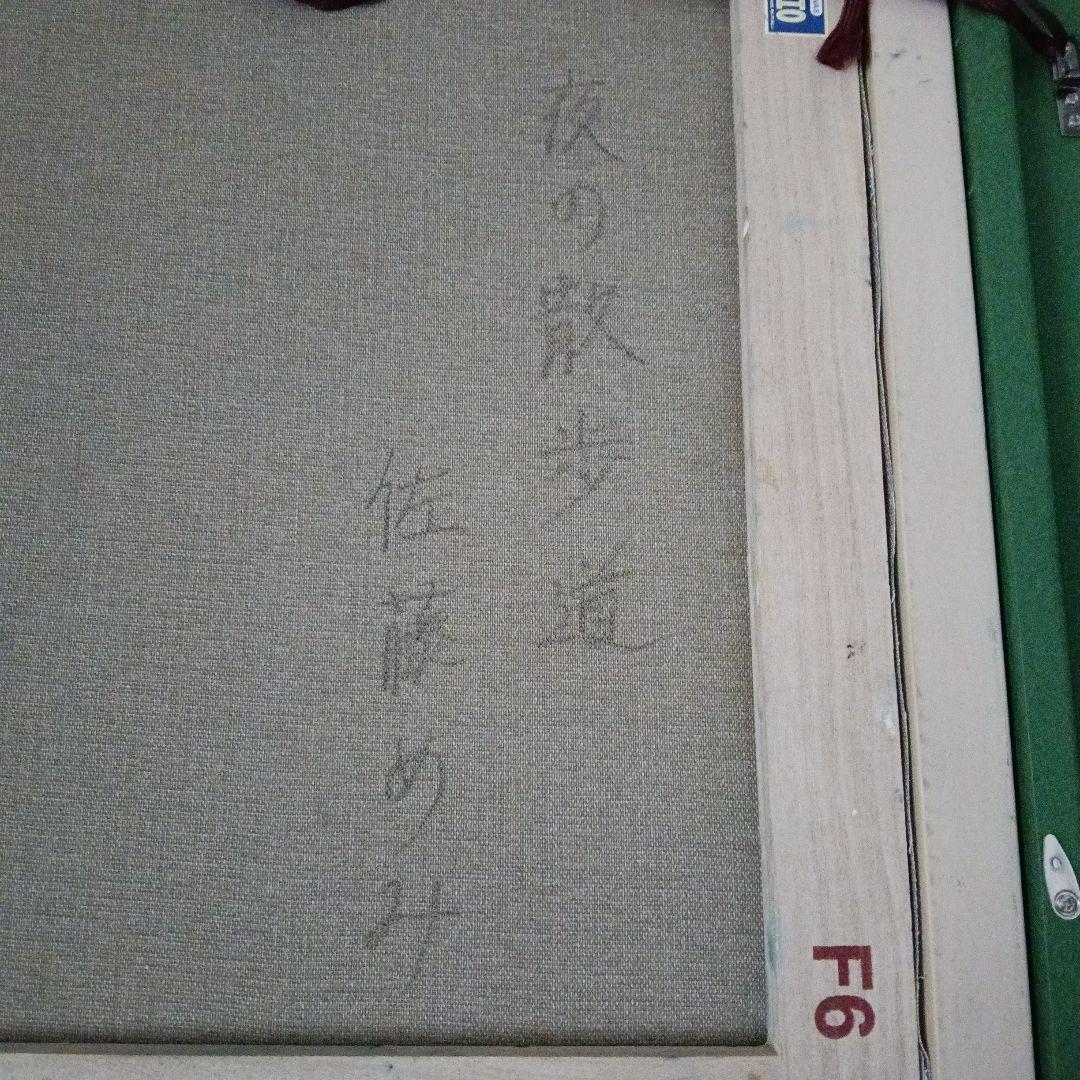 夜の散歩道
佐藤めみ
F6